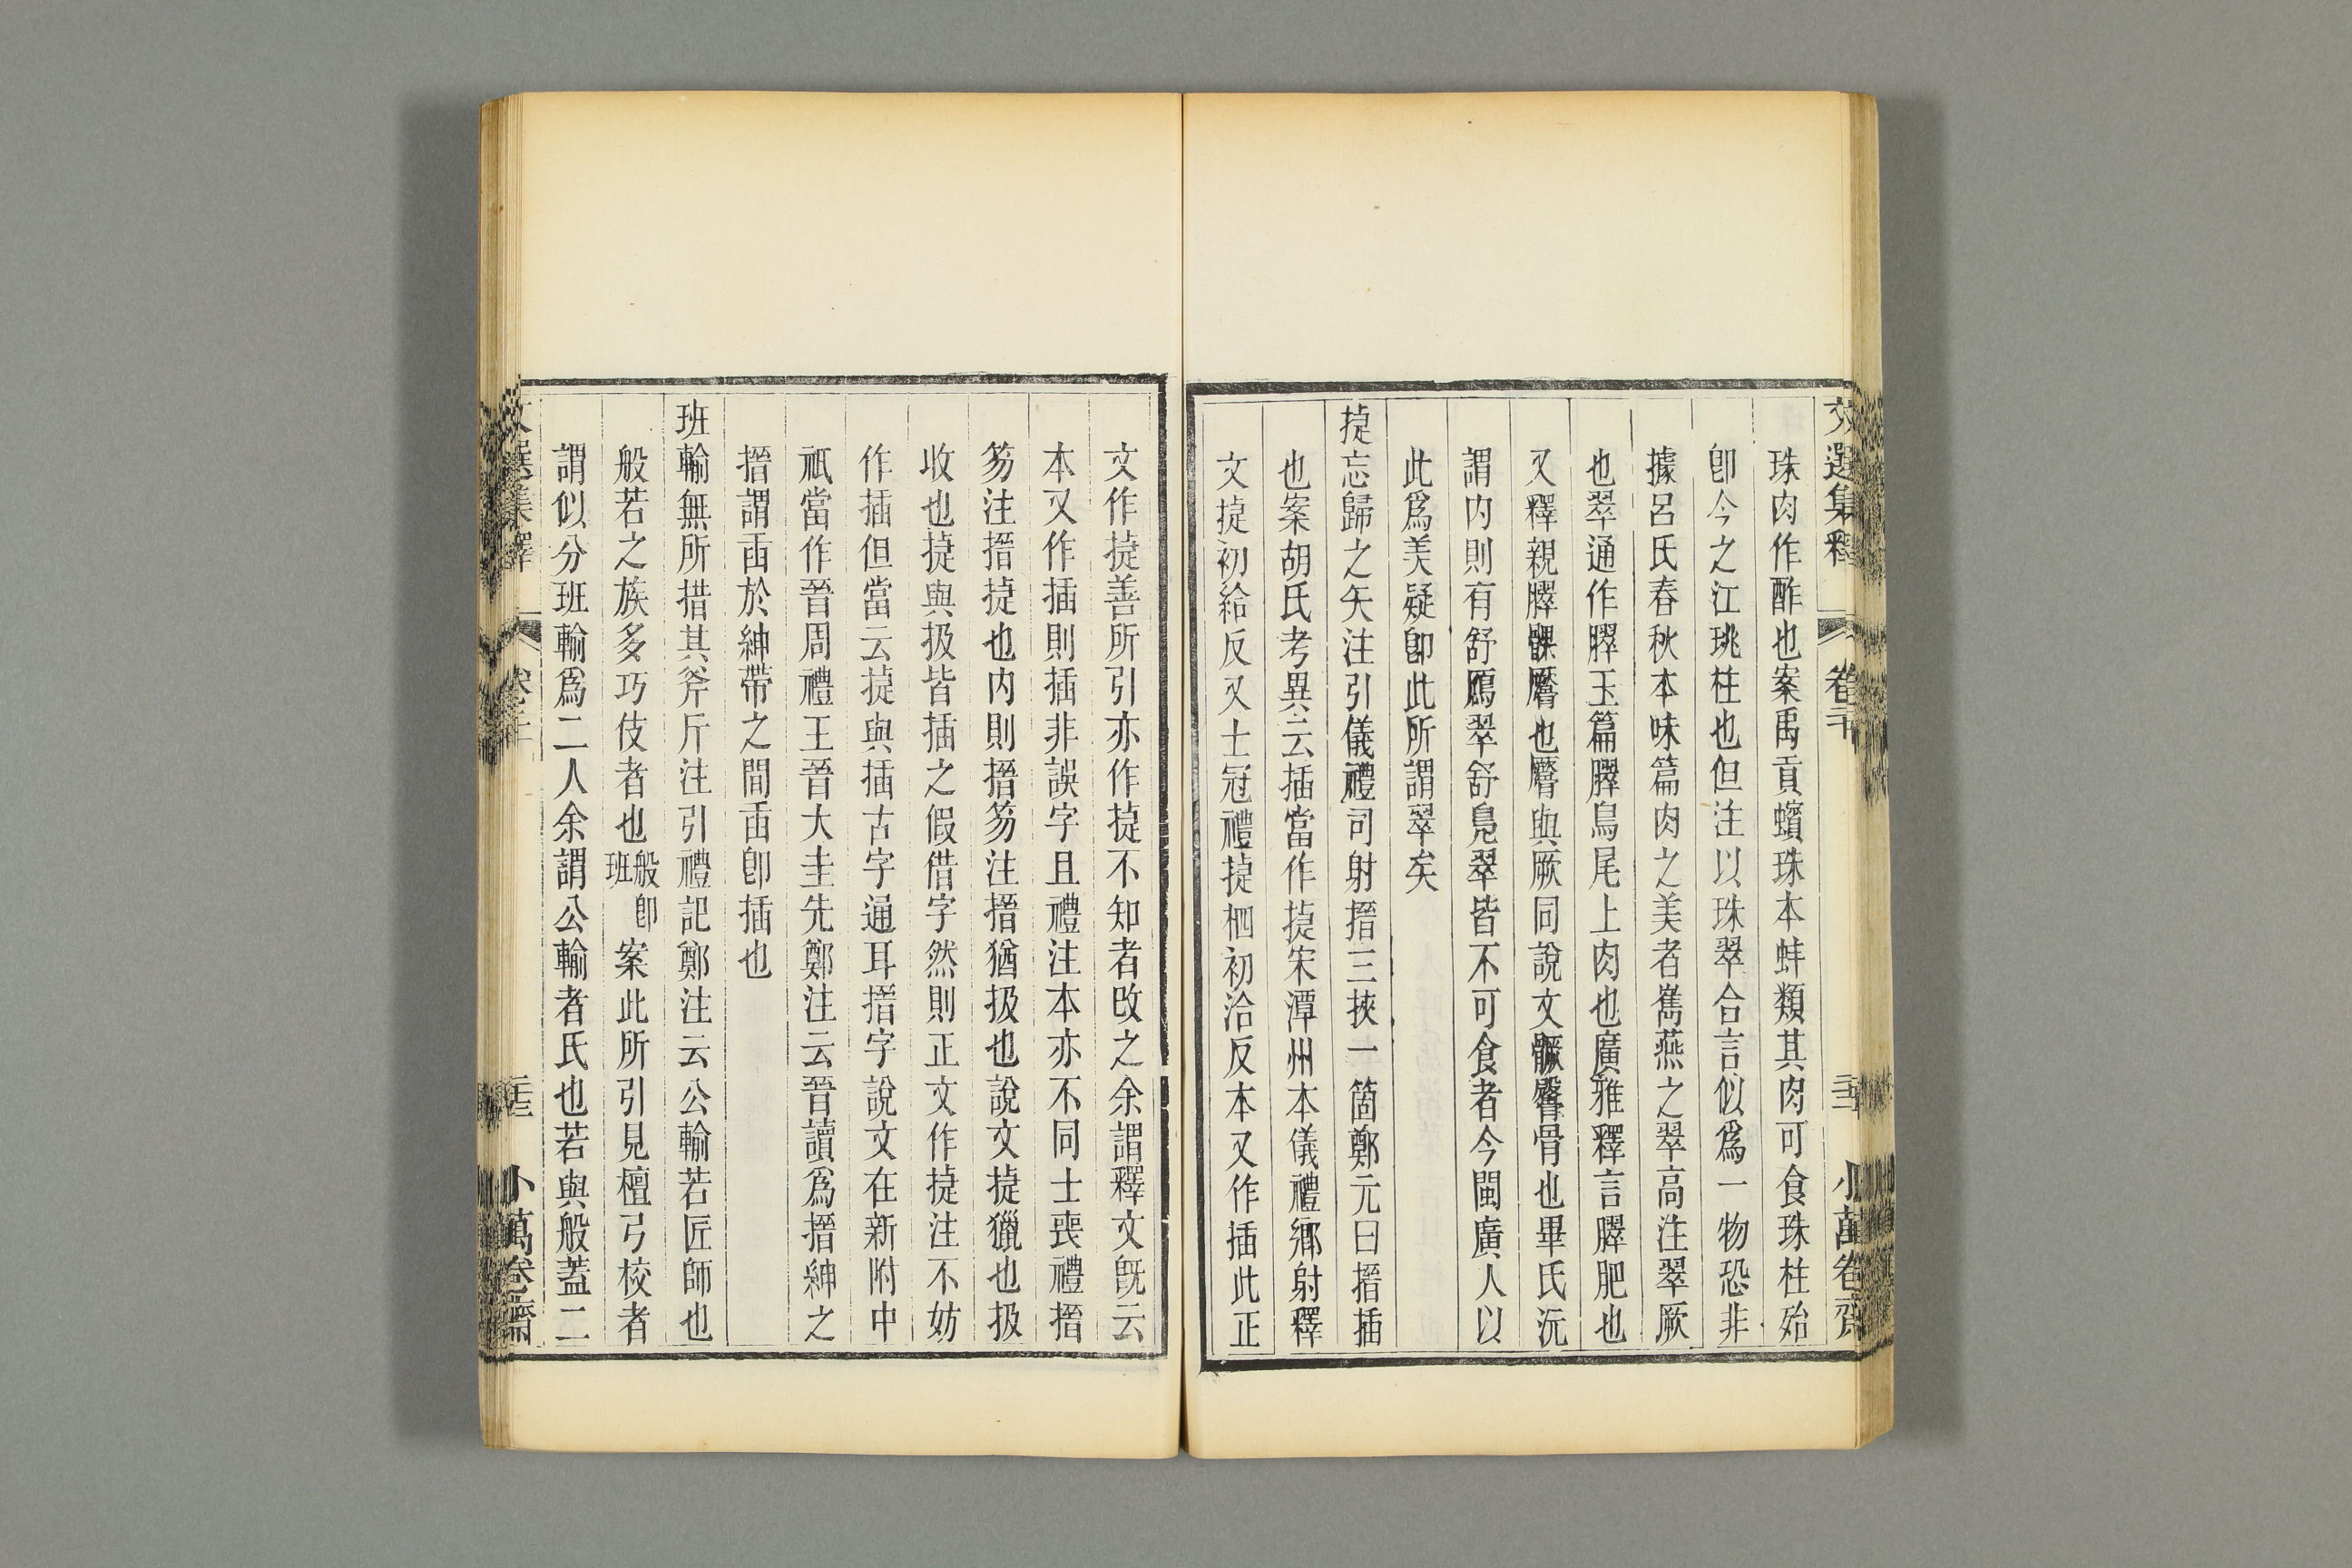 文選集釋 卷二十 小萬卷齋
珠肉作酢也案禹貢蠙珠本蚌類其肉可食珠柱殆
卽今之江珧柱也但注以珠翠合言似爲一物恐非
據呂氏春秋本味篇肉之美者雋燕之翠高注翠厥
也翠通作臎玉篇臎鳥尾上肉也廣雅釋言臎肥也
又釋親臎髁也與厥同說文臀骨也畢氏沅
謂內則有舒鴈翠舒鳧翠皆不可食者今閩廣人以
此爲美疑卽此所謂翠矣
捷忘歸之矢注引儀禮司射搢三挾一箇鄭元曰搢插
也案胡氏考異云插當作捷宋潭州本儀禮鄉射釋
文捷初給反又士冠禮捷柶初洽反本又作插此正
文作捷善所引亦作捷不知者改之余謂釋文旣云
本又作插則插非誤字且禮注本亦不同士喪禮搢
笏注搢捷也內則搢笏注搢猶扱也說文捷獵也扱
收也捷與扱皆插之假借字然則正文作捷注不妨
作插但當云捷與插古字通耳搢字說文在新附中
祇當作晉周禮王晉大圭先鄭注云晉讀爲搢紳之
搢謂臿於紳帶之間臿卽插也
班輸無所措其斧斤注引禮記鄭注云公輸若匠師也
般若之族多巧伎者也般卽班案此所引見檀弓校者
謂似分班輸爲二人余謂公輸者氏也若與般蓋二
文選集釋 卷二十 二十三 小萬卷齋